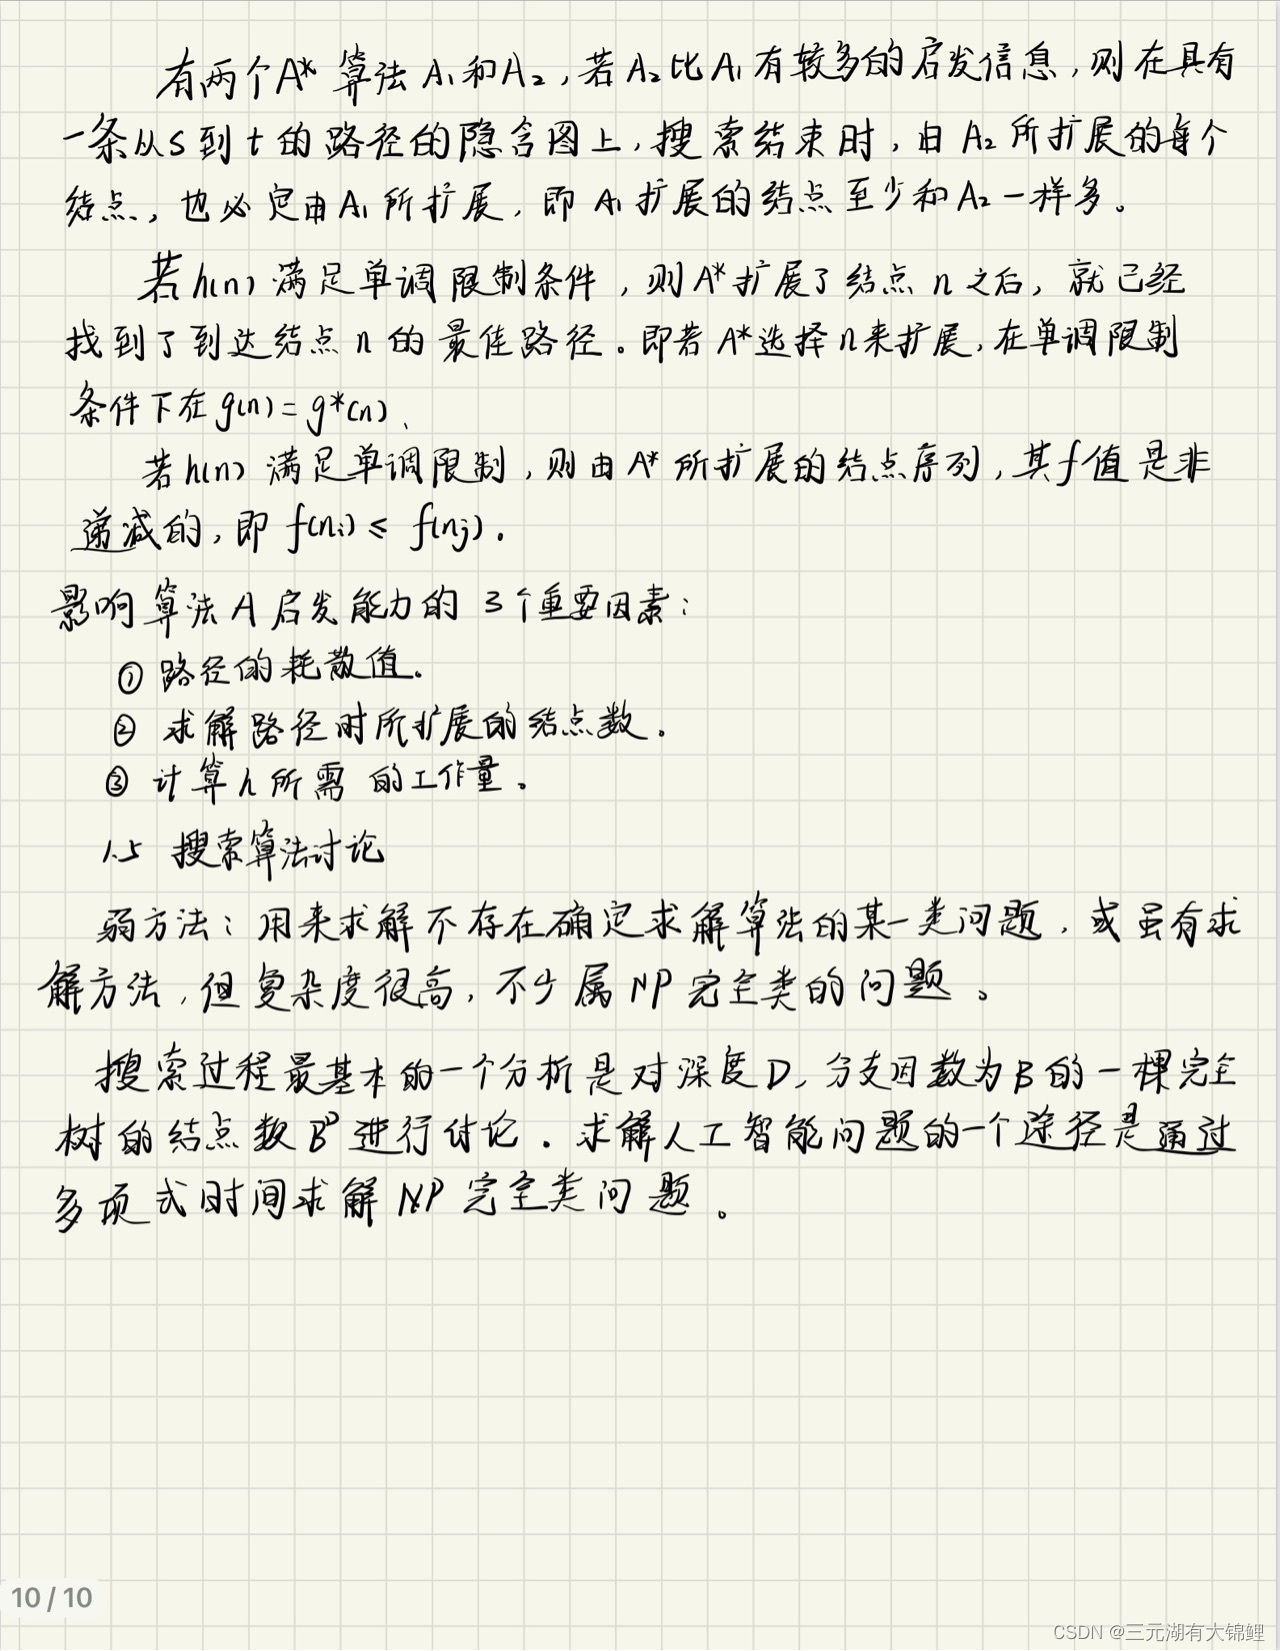 有两个A*算法A₁和A₂,若A₂比A₁有较多的启发信息,则在具有
一条从S到t的路径的隐含图上,搜索结束时,由A₂所扩展的每个
结点,也必定由A₁所扩展,即A₁扩展的结点至少和A₂一样多。
若h(n)满足单调限制条件,则A*扩展了结点n之后,就已经
找到了到达结点n的最佳路径。即若A*选择n来扩展,在单调限制
条件下在g(n)=g*(n)、
若h(n)满足单调限制,则由A*所扩展的结点序列,其f值是非
递减的,即f(nᵢ)≤f(nⱼ).
影响算法A启发能力的3个重要因素:
①路径的耗散值.
②求解路径时所扩展的结点数.
③计算h所需的工作量.
1.5 搜索算法讨论
弱方法:用来求解不存在确定求解算法的某一类问题,或虽有求
解方法,但复杂度很高,不少属NP完全类的问题。
搜索过程最基本的一个分析是对深度D,分支因数为B的一棵完全
树的结点数Bᴰ进行讨论.求解人工智能问题的一个途径是通过
多项式时间求解NP完全类问题。
10 / 10
CSDN @三元湖有大锦鲤